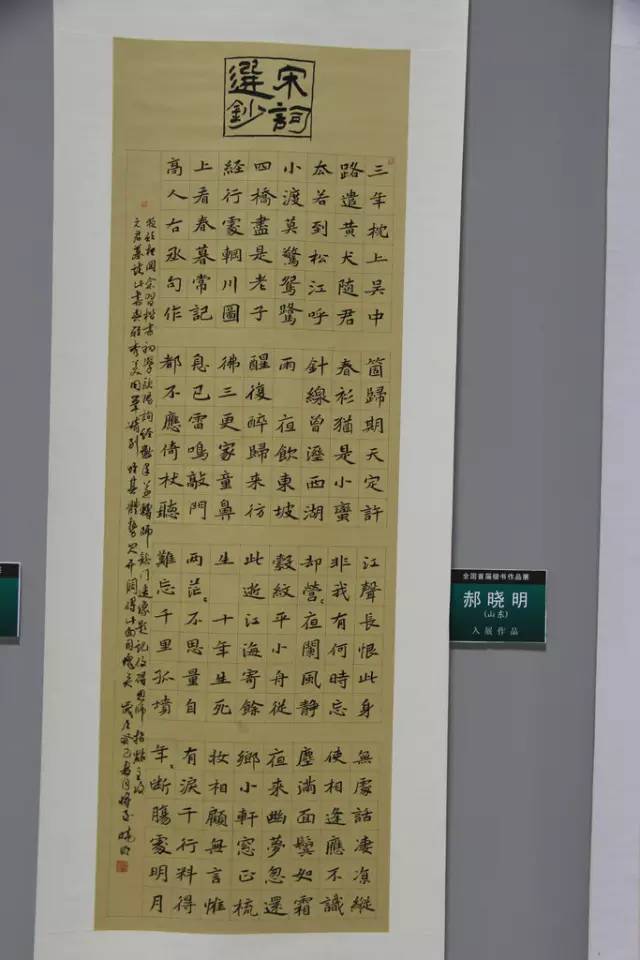 宋詞
選鈔
三年枕上吳中
路遣黃犬随君
去若到松江呼
小渡莫驚鴛鷺
四橋盡是老子
経行處輞川圖
上看春暮常記
高人右丞句作
箇歸期天定許
春衫猶是小蠻
針線曾溼西湖
雨 夜飲東坡
醒復醉歸来彷
彿三更家童鼻
息已雷鳴敲門
都不應倚杖聽
江聲長恨此身
非我有何時忘
却營〻夜闌風静
縠紋平小舟從
此逝江海寄餘
生 十年生死
兩茫〻不思量自
難忘千里孤墳
無處話凄凉縱
使相逢應不識
塵滿面鬢如霜
夜来幽夢忽還
鄉小軒窓正梳
妝相顧無言惟
有淚千行料得
年〻断腸處明月
全国首届楷书作品展
郝晓明
(山东)
入展作品